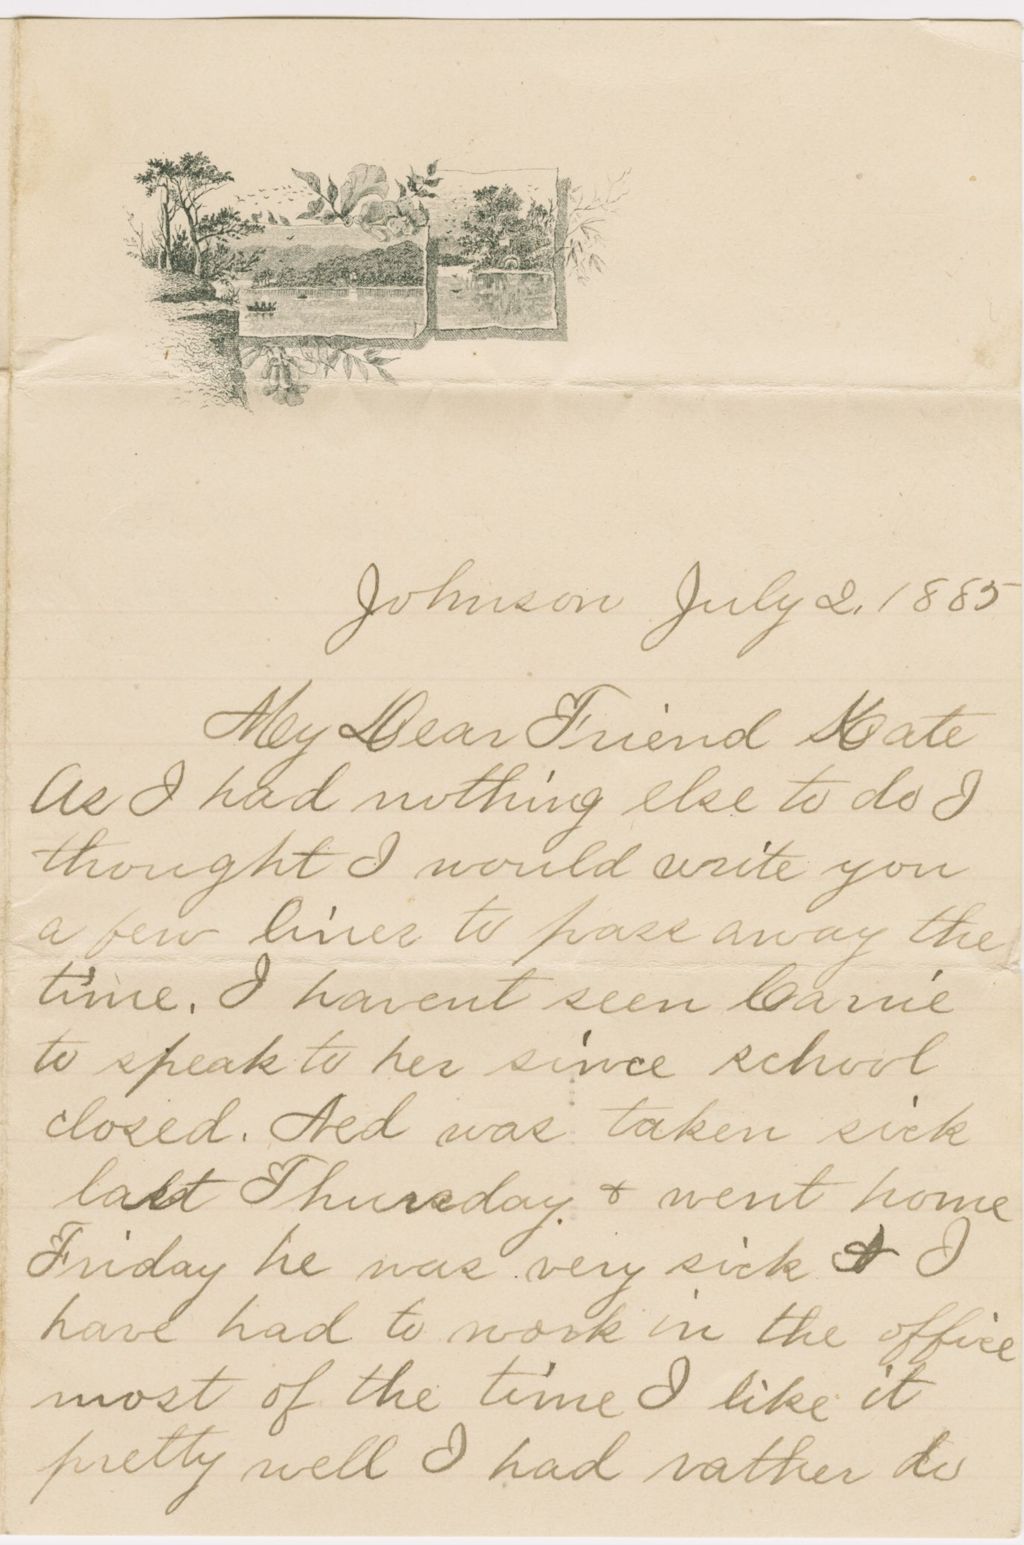 Johnson July 2, 1885
My Dear Friend Kate
As I had nothing else to do I
thought I would write you
a few lines to pass away the
time. I havent seen Carrie
to speak to her since school
closed. Ned was taken sick
last Thursday. & went home
Friday he was very sick & I
have had to work in the office
most of the time I like it
pretty well I had rather do